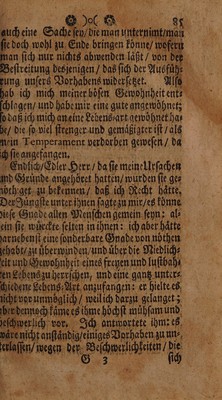 85
auch eine Sache sey, die man unternimt/man
sie doch wohl zu Ende bringen könne/ wofern
man sich nur nichts abwenden läst/ von der
Bestreitung desjenigen/ das sich der Ausfüh-
rung unsers Vorhabens widersetzet. Also
hab ich mich meiner bösen Gewohnheit ent-
schlagen/ und habe mir eine gute angewöhnet;
so daß ich mich an eine Lebens-art gewöhnet ha-
be/ die so viel strenger und gemäßigter ist/ als
mein Temperament verdorben gewesen/ da
ich sie angefangen.
Endlich/ Edler Herr/ da sie meine Ursachen
und Gründe angehöret hatten/ wurden sie ge-
nöthiget zu bekennen/ daß ich Recht hätte.
Der Jüngste unter ihnen sagte zu mir/ es könne
diese Gnade allen Menschen gemein seyn: al-
lein sie würcke selten in ihnen: ich aber hätte
eine sonderbare Gnade von nöthen
gehabt/ zu überwinden/ und über die Niedlich-
keit und Gewohnheit eines freyen und lustba-
ren Lebens zu herrschen/ und eine gantz unter-
schiedene Lebens-Art anzufangen: er hielte es
nicht vor unmöglich/ weil ich darzu gelanget;
aber dennoch käme es ihme höchst mühsam und
beschwerlich vor. Ich antwortete ihm: es
wäre nicht anständig/ einiges Vorhaben zu un-
terlassen/ wegen der Beschwerlichkeiten/ die
G 3 sich